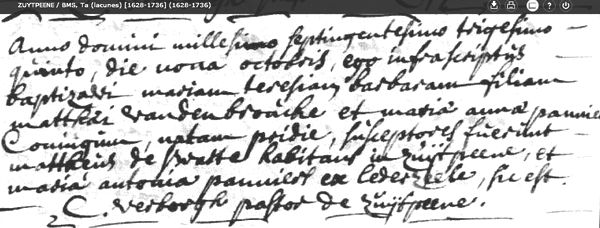 ZUYTPEENE / BMS, Ta (lacunes) [1628-1736] (1628-1736)
Anno domini millesimo septingentesimo trigesimo
quinto, die nona octobris, ego infrascriptus
baptizavi mariam teresiam barbaram filiam
matthæi vandenbroucke et maria anna pannier
Coniugum, natam pridie, susceptores fuerunt
mattheus de swatte habitans in zuijtpeene, et
maria antonia pannier ex lederzeele, sic est.
C. verborgh pastor de zuijtpeene.